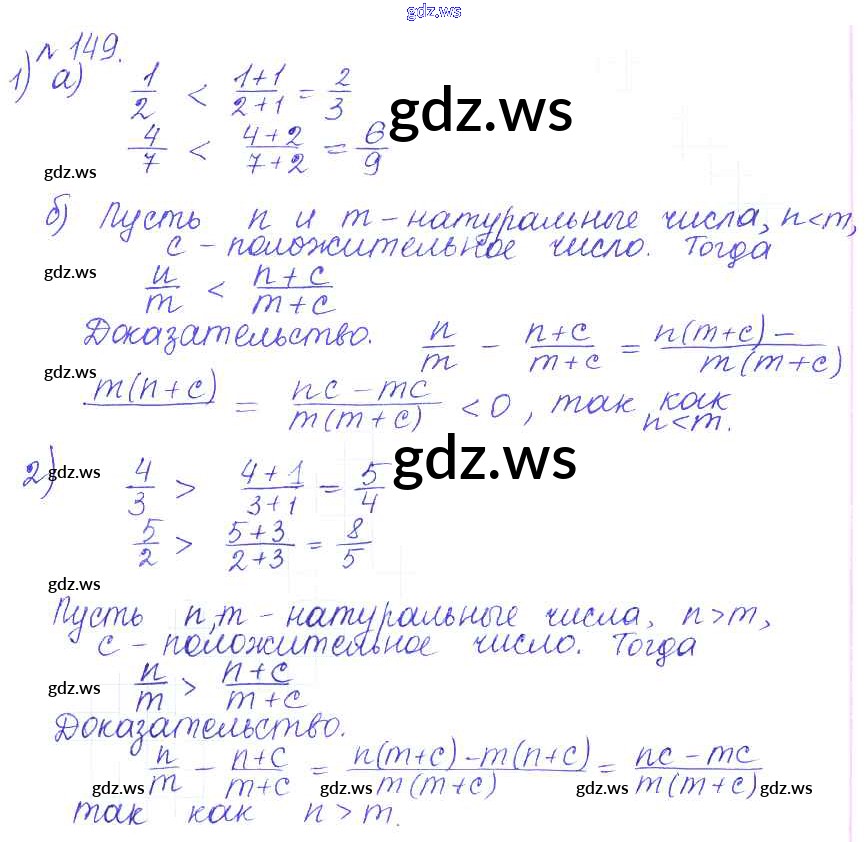 gdz.ws
№ 149.
1) а) 1/2 < (1+1)/(2+1) = 2/3
gdz.ws
4/7 < (4+2)/(7+2) = 6/9
gdz.ws
б) Пусть n и m - натуральные числа, n<m,
c - положительное число. Тогда
gdz.ws
n/m < (n+c)/(m+c)
Доказательство. n/m - (n+c)/(m+c) = (n(m+c) -
gdz.ws
m(n+c))/(m(m+c)) = (nc - mc)/(m(m+c)) < 0, так как
n<m.
gdz.ws
2) 4/3 > (4+1)/(3+1) = 5/4
gdz.ws
5/2 > (5+3)/(2+3) = 8/5
gdz.ws
Пусть n,m - натуральные числа, n>m,
c - положительное число. Тогда
n/m > (n+c)/(m+c)
gdz.ws
Доказательство.
n/m - (n+c)/(m+c) = (n(m+c) - m(n+c))/(m(m+c)) = (nc - mc)/(m(m+c))
gdz.ws gdz.ws gdz.ws
так как n > m.